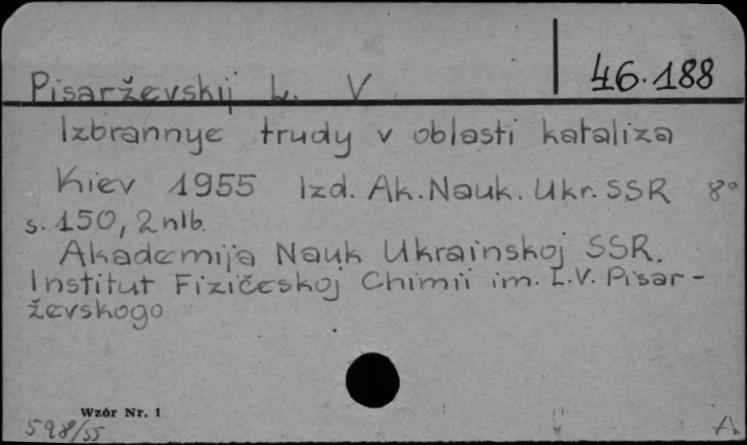 46.188
Pisarževskij L. V
Izbrannye trudy v oblasti kataliza
Kiev 1955 Izd. Ak. Nauk. Ukr. SSR 8°
s. 150, 2 nlb.
Akademija Nauk Ukrainskoj SSR.
Institut Fizičeskoj Chimii im. L.V. Pisar-
ževskogo
Wzór Nr. 1
598/55 A